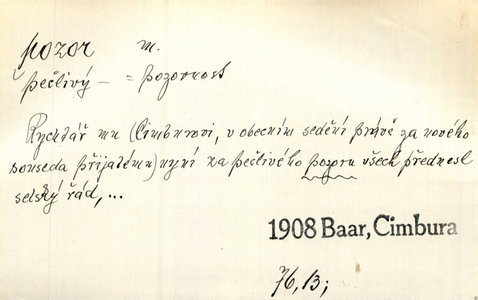 pozor m.
pečlivý – = pozornost
Rychtář mu (Cimburovi, v obecním sedění právě za nového
souseda přijatému) nyní na pečlivého pozoru všech přednesl
selský řád, ...
1908 Baar, Cimbura
76, 13;